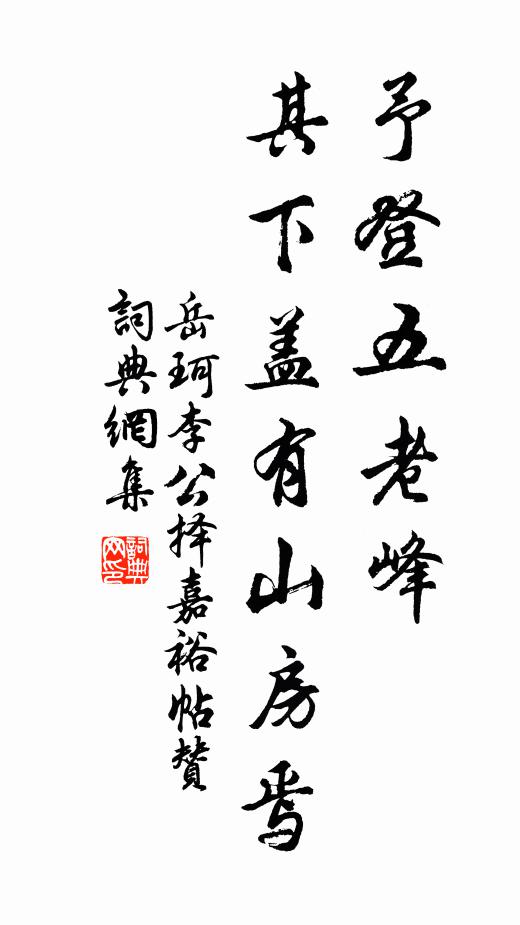 予登五老峰
其下盖有山房焉
岳珂李公择嘉裕帖赞
詞典網集
詞典网印